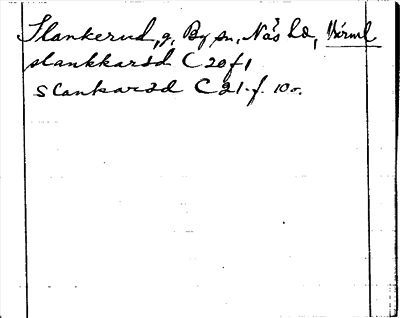 Slankerud, g. By sn, Näs hd, Värml
slankkaråd C 20 f 1
Slankaråd C 21. f. 10 o.